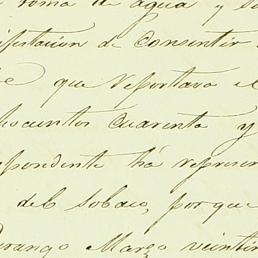 toma de agua y la
ifestacion de Consentir
que reportara el
doscientos cuarenta y
spondente há represen
del sobaco, porque
Durango Marzo veintin